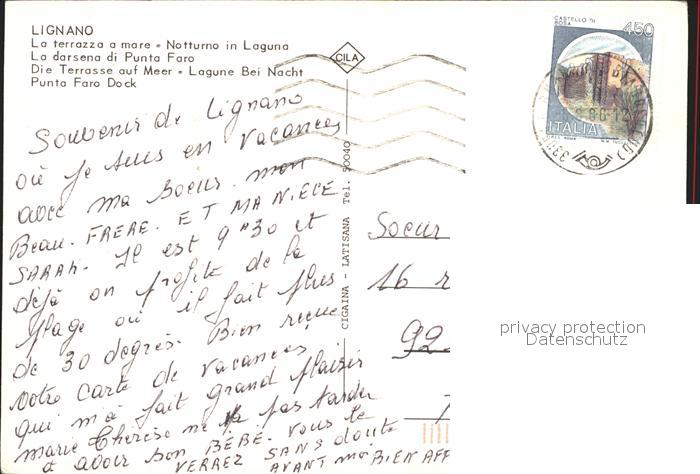 LIGNANO
La terrazza a mare • Notturno in Laguna
La darsena di Punta Faro
Die Terrasse auf Meer • Lagune Bei Nacht
Punta Faro Dock
CILA
CASTELLO DI ROSA
450
ITALIA
CIGAINA - LATISANA Tel. 50040
Souvenir de Lignano
où je suis en vacances
avec ma soeur. mon
Beau. FRERE. ET MA NIECE
SARAH. Il est 9H30 et
déjà on profite de la
plage où il fait plus
de 30 degrés. Bien reçue
votre carte de vacances
qui m'à fait grand plaisir
marie thérèse ne pas tarder
à avoir son BÉBÉ. vous le
VERREZ SANS doute
AVANT moi BIEN AFF
Soeur
16 r
92
privacy protection
Datenschutz